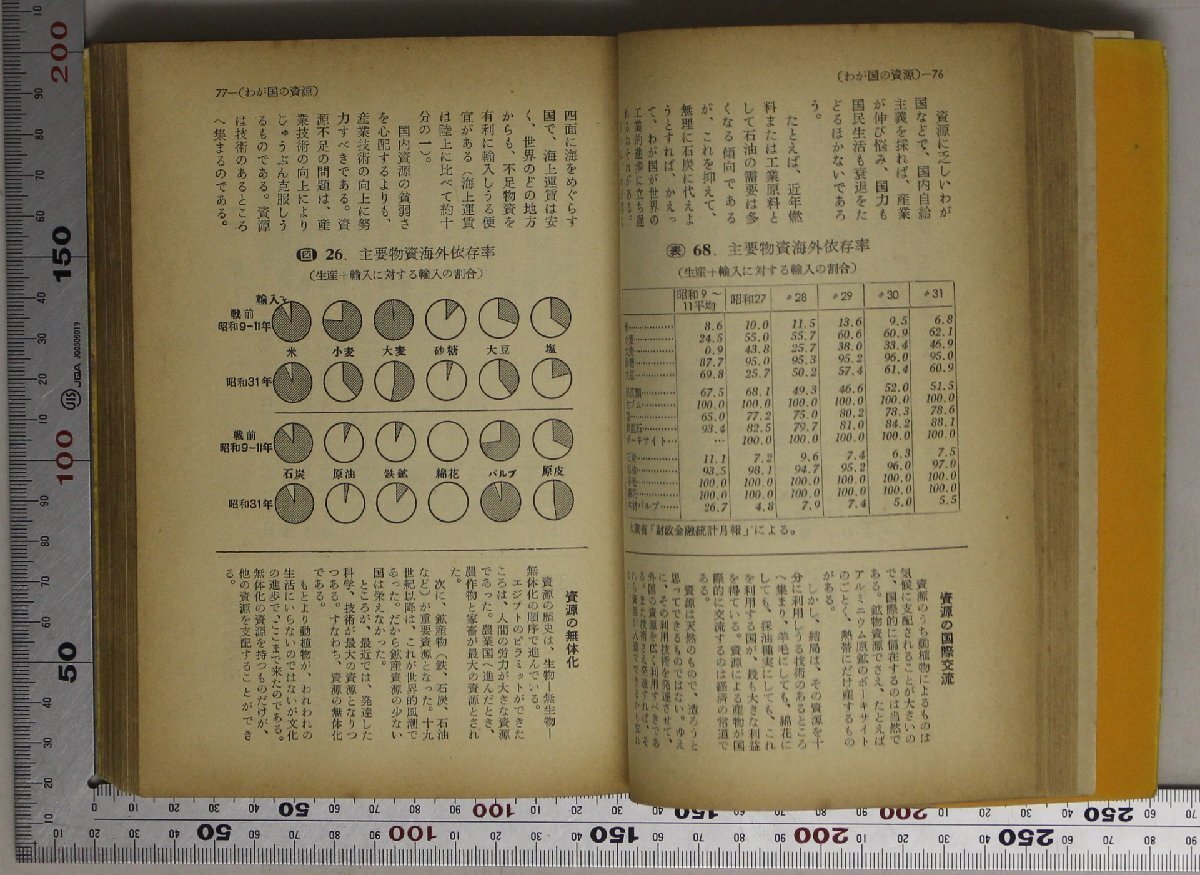 (わが国の資源)—76
資源に乏しいわが
国などで、国内自給
主義を採れば、産業
が伸び悩み、国力も
国民生活も衰退をた
どるほかないであろ
う。
たとえば、近年燃
料または工業原料と
して石油の需要は多
くなる傾向である
が、これを抑えて、
無理に石炭に代えよ
うとすれば、かえっ
て、わが国が世界の
工業的進歩に立ち遅
れるおそれがある。
表 68. 主要物資海外依存率
(生産+輸入に対する輸入の割合)
昭和9~11平均 昭和27 〃28 〃29 〃30 〃31
8.6 10.0 11.5 13.6 9.5 6.8
24.5 55.0 55.7 60.6 60.9 62.1
0.9 43.8 25.7 38.0 33.4 46.9
87.7 95.0 95.3 95.2 96.0 95.0
69.8 25.7 50.2 57.4 61.4 60.9
67.5 68.1 49.3 46.6 52.0 51.5
100.0 100.0 100.0 100.0 100.0 100.0
65.0 77.2 75.0 80.2 78.3 78.6
93.4 82.5 79.7 81.0 84.2 88.1
ボーキサイト… … 100.0 100.0 100.0 100.0 100.0
11.1 7.2 9.6 7.4 6.3 7.5
93.5 98.1 94.7 95.2 96.0 97.0
100.0 100.0 100.0 100.0 100.0 100.0
100.0 100.0 100.0 100.0 100.0 100.0
パルプ… 26.7 4.8 7.9 7.4 5.0 5.5
大蔵省「財政金融統計月報」による。
資源の国際交流
資源のうち動植物によるものは
気候に支配されることが大きいの
で、国際的に偏在するのは当然で
ある。鉱物資源でさえ、たとえば
アルミニウム原鉱のボーキサイト
のごとく、熱帯にだけ産するもの
がある。
しかし、結局は、その資源を十
分に利用しうる技術のあるところ
へ集まり、羊毛にしても、綿花に
しても、採油種実にしても、これ
を利用する国が、最も大きな利益
を得ている。資源による産物が国
際的に交流するのは経済の常道で
ある。
資源は天然のもので、造ろうと
思ってできるものではない。ゆえ
に、その利用技術を発達させて、
外国の資源を広く利用すべきであ
77—(わが国の資源)
四面に海をめぐらす
国で、海上運賃は安
く、世界のどの地方
からも、不足物資を
有利に輸入しうる便
宜がある(海上運賃
は陸上に比べて約十
分の一)。
国内資源の貧弱さ
を心配するよりも、
産業技術の向上に努
力すべきである。資
源不足の問題は、産
業技術の向上により
じゅうぶん克服しう
るものである。資源
は技術のあるところ
へ集まるのである。
図 26. 主要物資海外依存率
(生産+輸入に対する輸入の割合)
輸入
戦前
昭和9-11年
米 小麦 大麦 砂糖 大豆 塩
昭和31年
戦前
昭和9-11年
石炭 原油 鉄鉱 綿花 パルプ 原皮
昭和31年
資源の無体化
資源の歴史は、生物—無生物—
無体化の順序で進んでいる。
エジプトのピラミットができた
ころは、人間の労力が大きな資源
であった。農業国へ進んだとき、
農作物と家畜が最大の資源とされ
た。
次に、鉱産物(鉄、石炭、石油
など)が重要資源となった。十九
世紀以降は、これが世界的風潮で
あった。だから鉱産資源の少ない
国は栄えなかった。
ところが、最近では、発達した
科学、技術が最大の資源となりつ
つある。すなわち、資源の無体化
である。
もとより動植物が、われわれの
生活にいらないのではないが文化
の進歩で、ここまで来たのである。
無体化の資源を持つものだけが、
他の資源を支配することができ
る。
JIS JGA JQ0308019